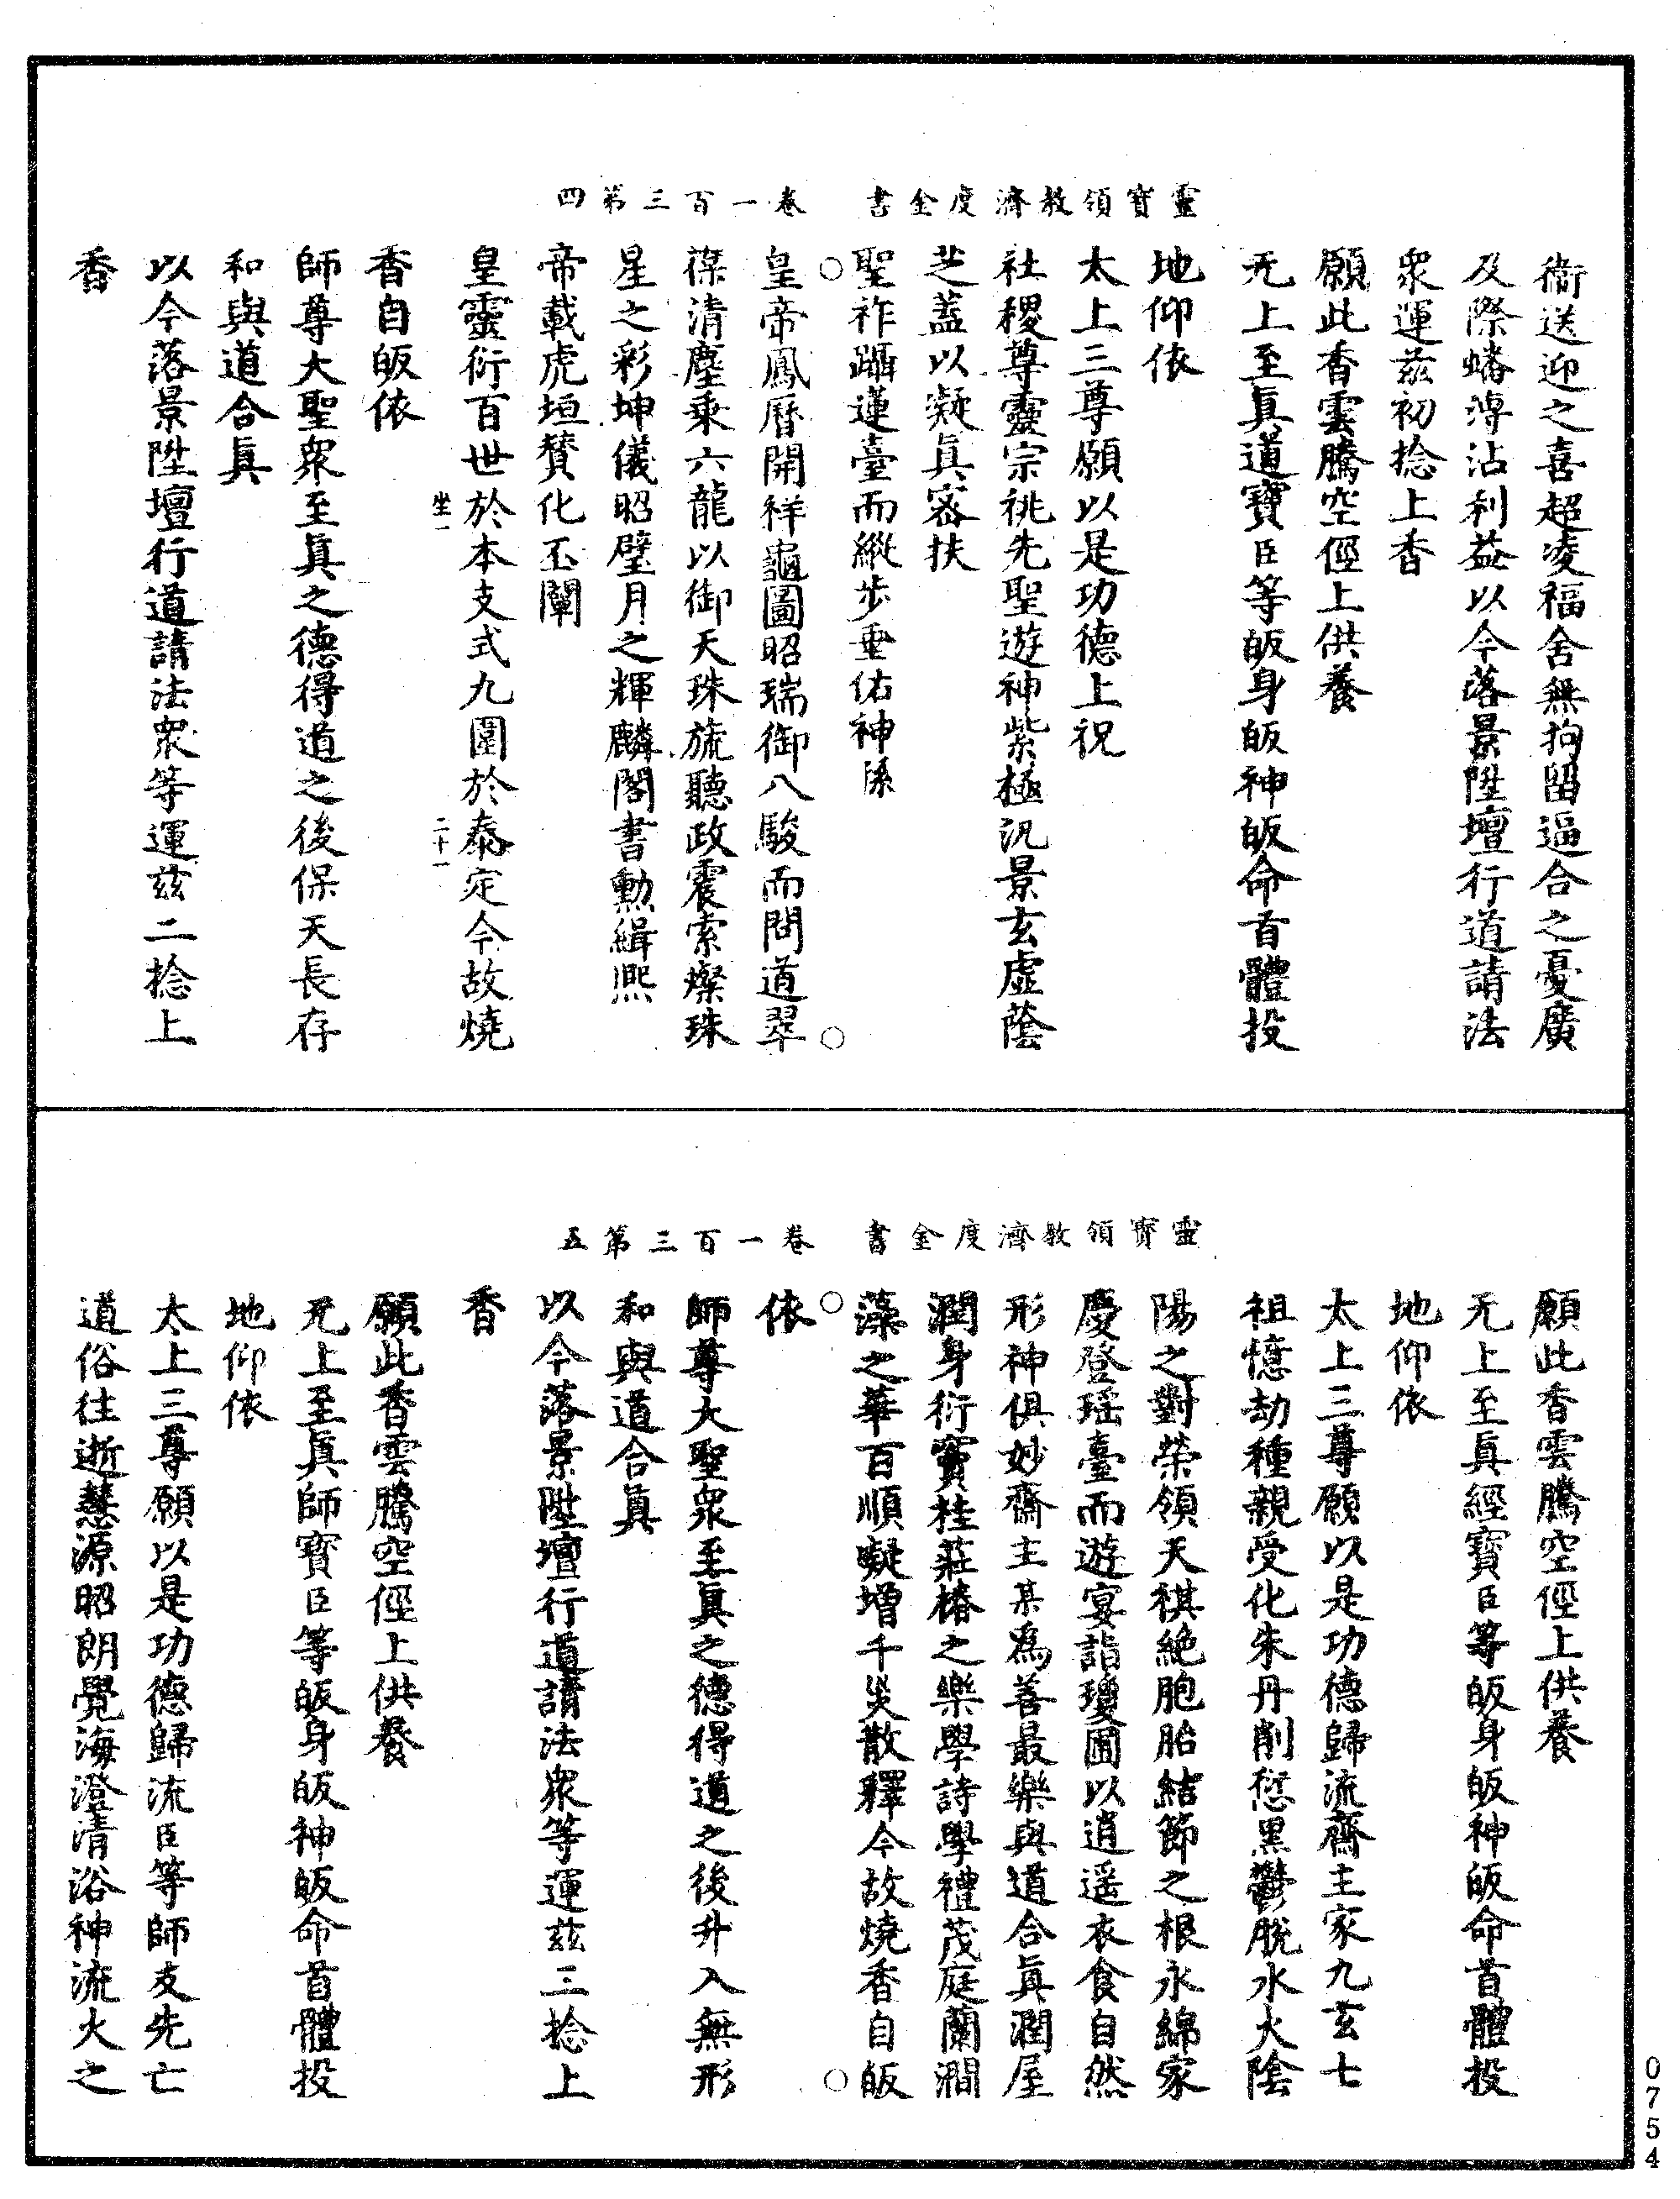 靈寶領教濟度金書 卷一百三第四
衞送迎之喜超凌福舍無拘留逼合之憂廣
及際蟠溥沾利益以今落景陞壇行道請法
衆運兹初捻上香
願此香雲騰空徑上供養
无上至眞道寶臣等皈身皈神皈命首體投
地仰依
太上三尊願以是功德上祝
社稷尊靈宗祧先聖遊神紫極汎景玄虛蔭
芝蓋以凝眞密扶
聖祚躡蓮臺而縱步垂佑神孫
皇帝鳳曆開祥龜圖昭瑞御八駿而問道翠
葆清塵乘六龍以御天珠旒聽政震索燦珠
星之彩坤儀昭璧月之輝麟閣書勳緝熙
帝載虎垣贊化丕闡
皇靈衍百世於本支式九圍於泰定今故燒
坐一 二十一
香自皈依
師尊大聖衆至眞之德得道之後保天長存
和與道合眞
以今落景陞壇行道請法衆等運兹二捻上
香
靈寶領教濟度金書 卷一百三第五
願此香雲騰空徑上供養
无上至眞經寶臣等皈身皈神皈命首體投
地仰依
太上三尊願以是功德歸流齋主家九玄七
祖憶劫種親受化朱丹削愆黑鬱脫水火陰
陽之對榮領天祺絶胞胎結節之根永綿家
慶登瑶臺而遊宴詣瓊圃以逍遥衣食自然
形神俱妙齋主某爲善最樂與道合眞潤屋
潤身衍竇桂莊椿之樂學詩學禮茂庭蘭澗
藻之華百順凝增千災散釋今故燒香自皈
依
師尊大聖衆至眞之德得道之後升入無形
和與道合眞
以今落景陞壇行道請法衆等運兹三捻上
香
願此香雲騰空徑上供養
无上至眞師寶臣等皈身皈神皈命首體投
地仰依
太上三尊願以是功德歸流臣等師友先亡
道俗往逝慧源昭朗覺海澄清浴神流火之
0754